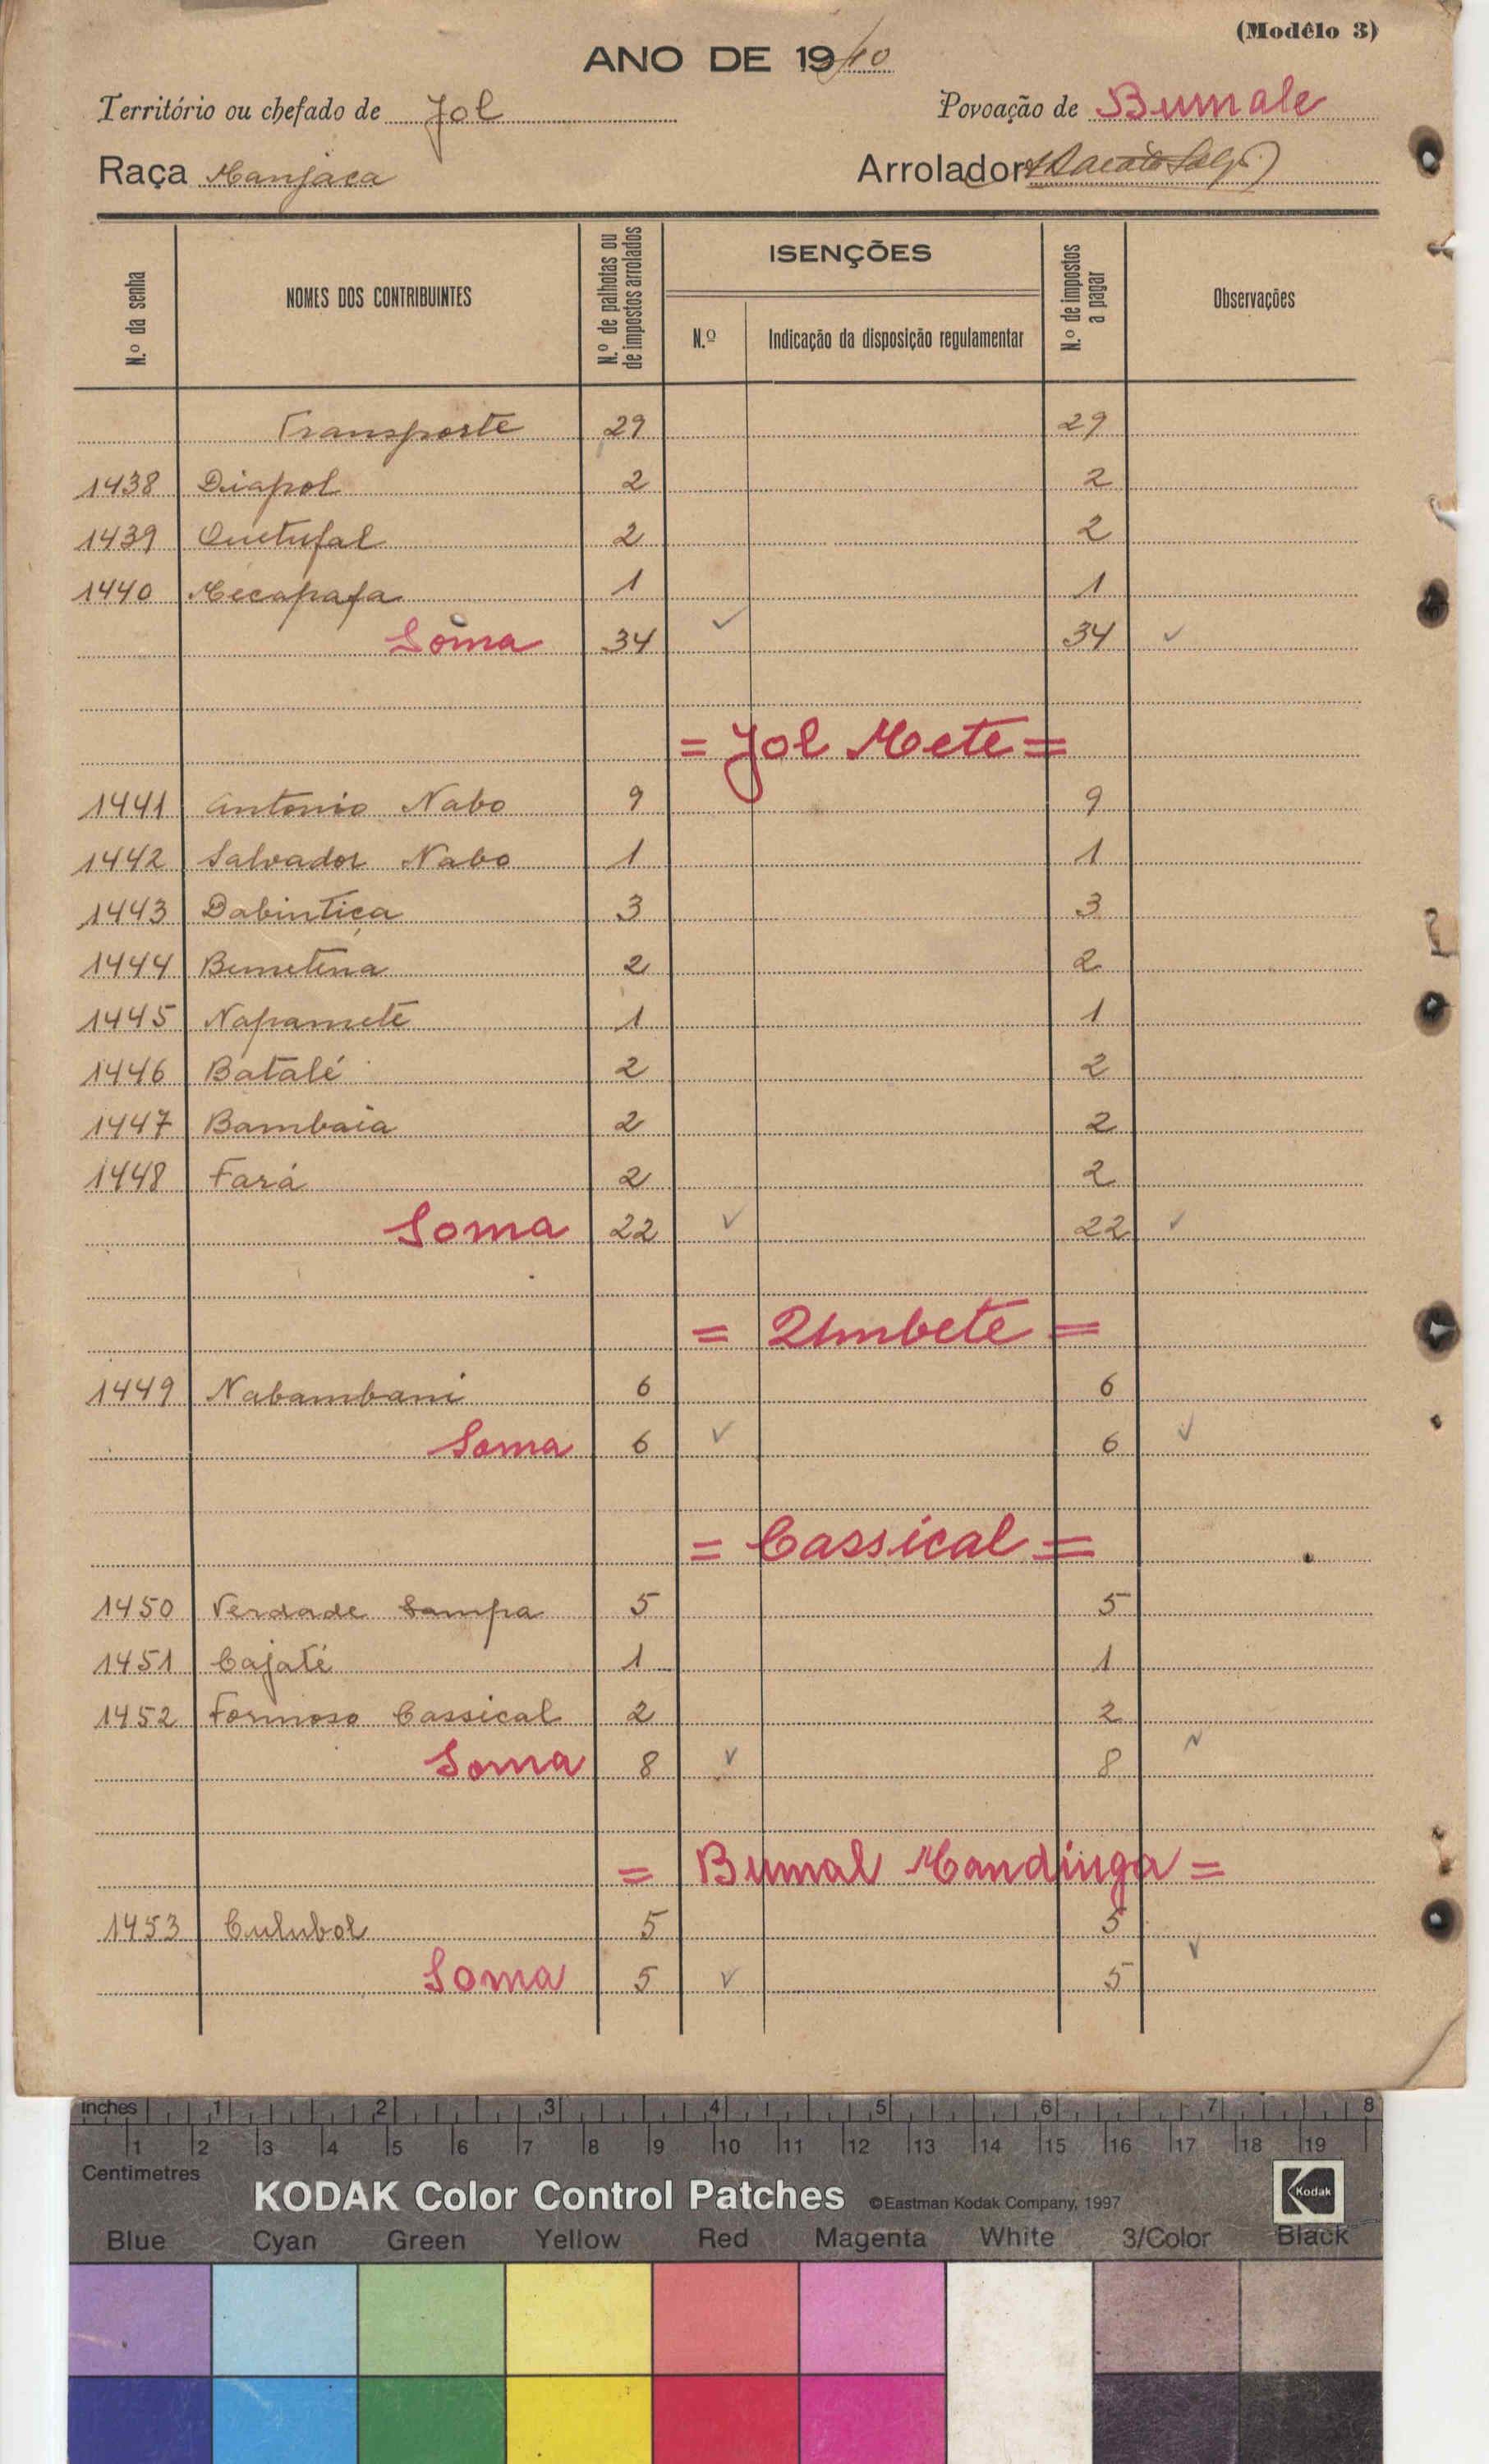 (Modêlo 3)
ANO DE 1940
Território ou chefado de Jol Povoação de Bumale
Raça Manjaca Arrolador
N.º da senha NOMES DOS CONTRIBUINTES N.º de palhotas ou de impostos arrolados ISENÇÕES N.º Indicação da disposição regulamentar N.º de impostos a pagar Observações
Transporte 29 29
1438 Diapol 2 2
1439 Quetufal 2 2
1440 Mecapafa 1 1
Soma 34 ✓ 34 ✓
= Jol Mete =
1441 Antonio Nabo 9 9
1442 Salvador Nabo 1 1
1443 Dabintiça 3 3
1444 Bemetena 2 2
1445 Napamete 1 1
1446 Batalé 2 2
1447 Bambaia 2 2
1448 Fará 2 2
Soma 22 ✓ 22 ✓
= Umbete =
1449 Nabambani 6 6
Soma 6 ✓ 6 ✓
= Cassical =
1450 Verdade Sampa 5 5
1451 Cajaté 1 1
1452 Formoso Cassical 2 2
Soma 8 ✓ 8 ✓
= Bumal Mandinga =
1453 Culubol 5 5
Soma 5 ✓ 5 ✓
inches 1 2 3 4 5 6 7 8
1 2 3 4 5 6 7 8 9 10 11 12 13 14 15 16 17 18 19
Centimetres
KODAK Color Control Patches ©Eastman Kodak Company, 1997 Kodak
Blue Cyan Green Yellow Red Magenta White 3/Color Black